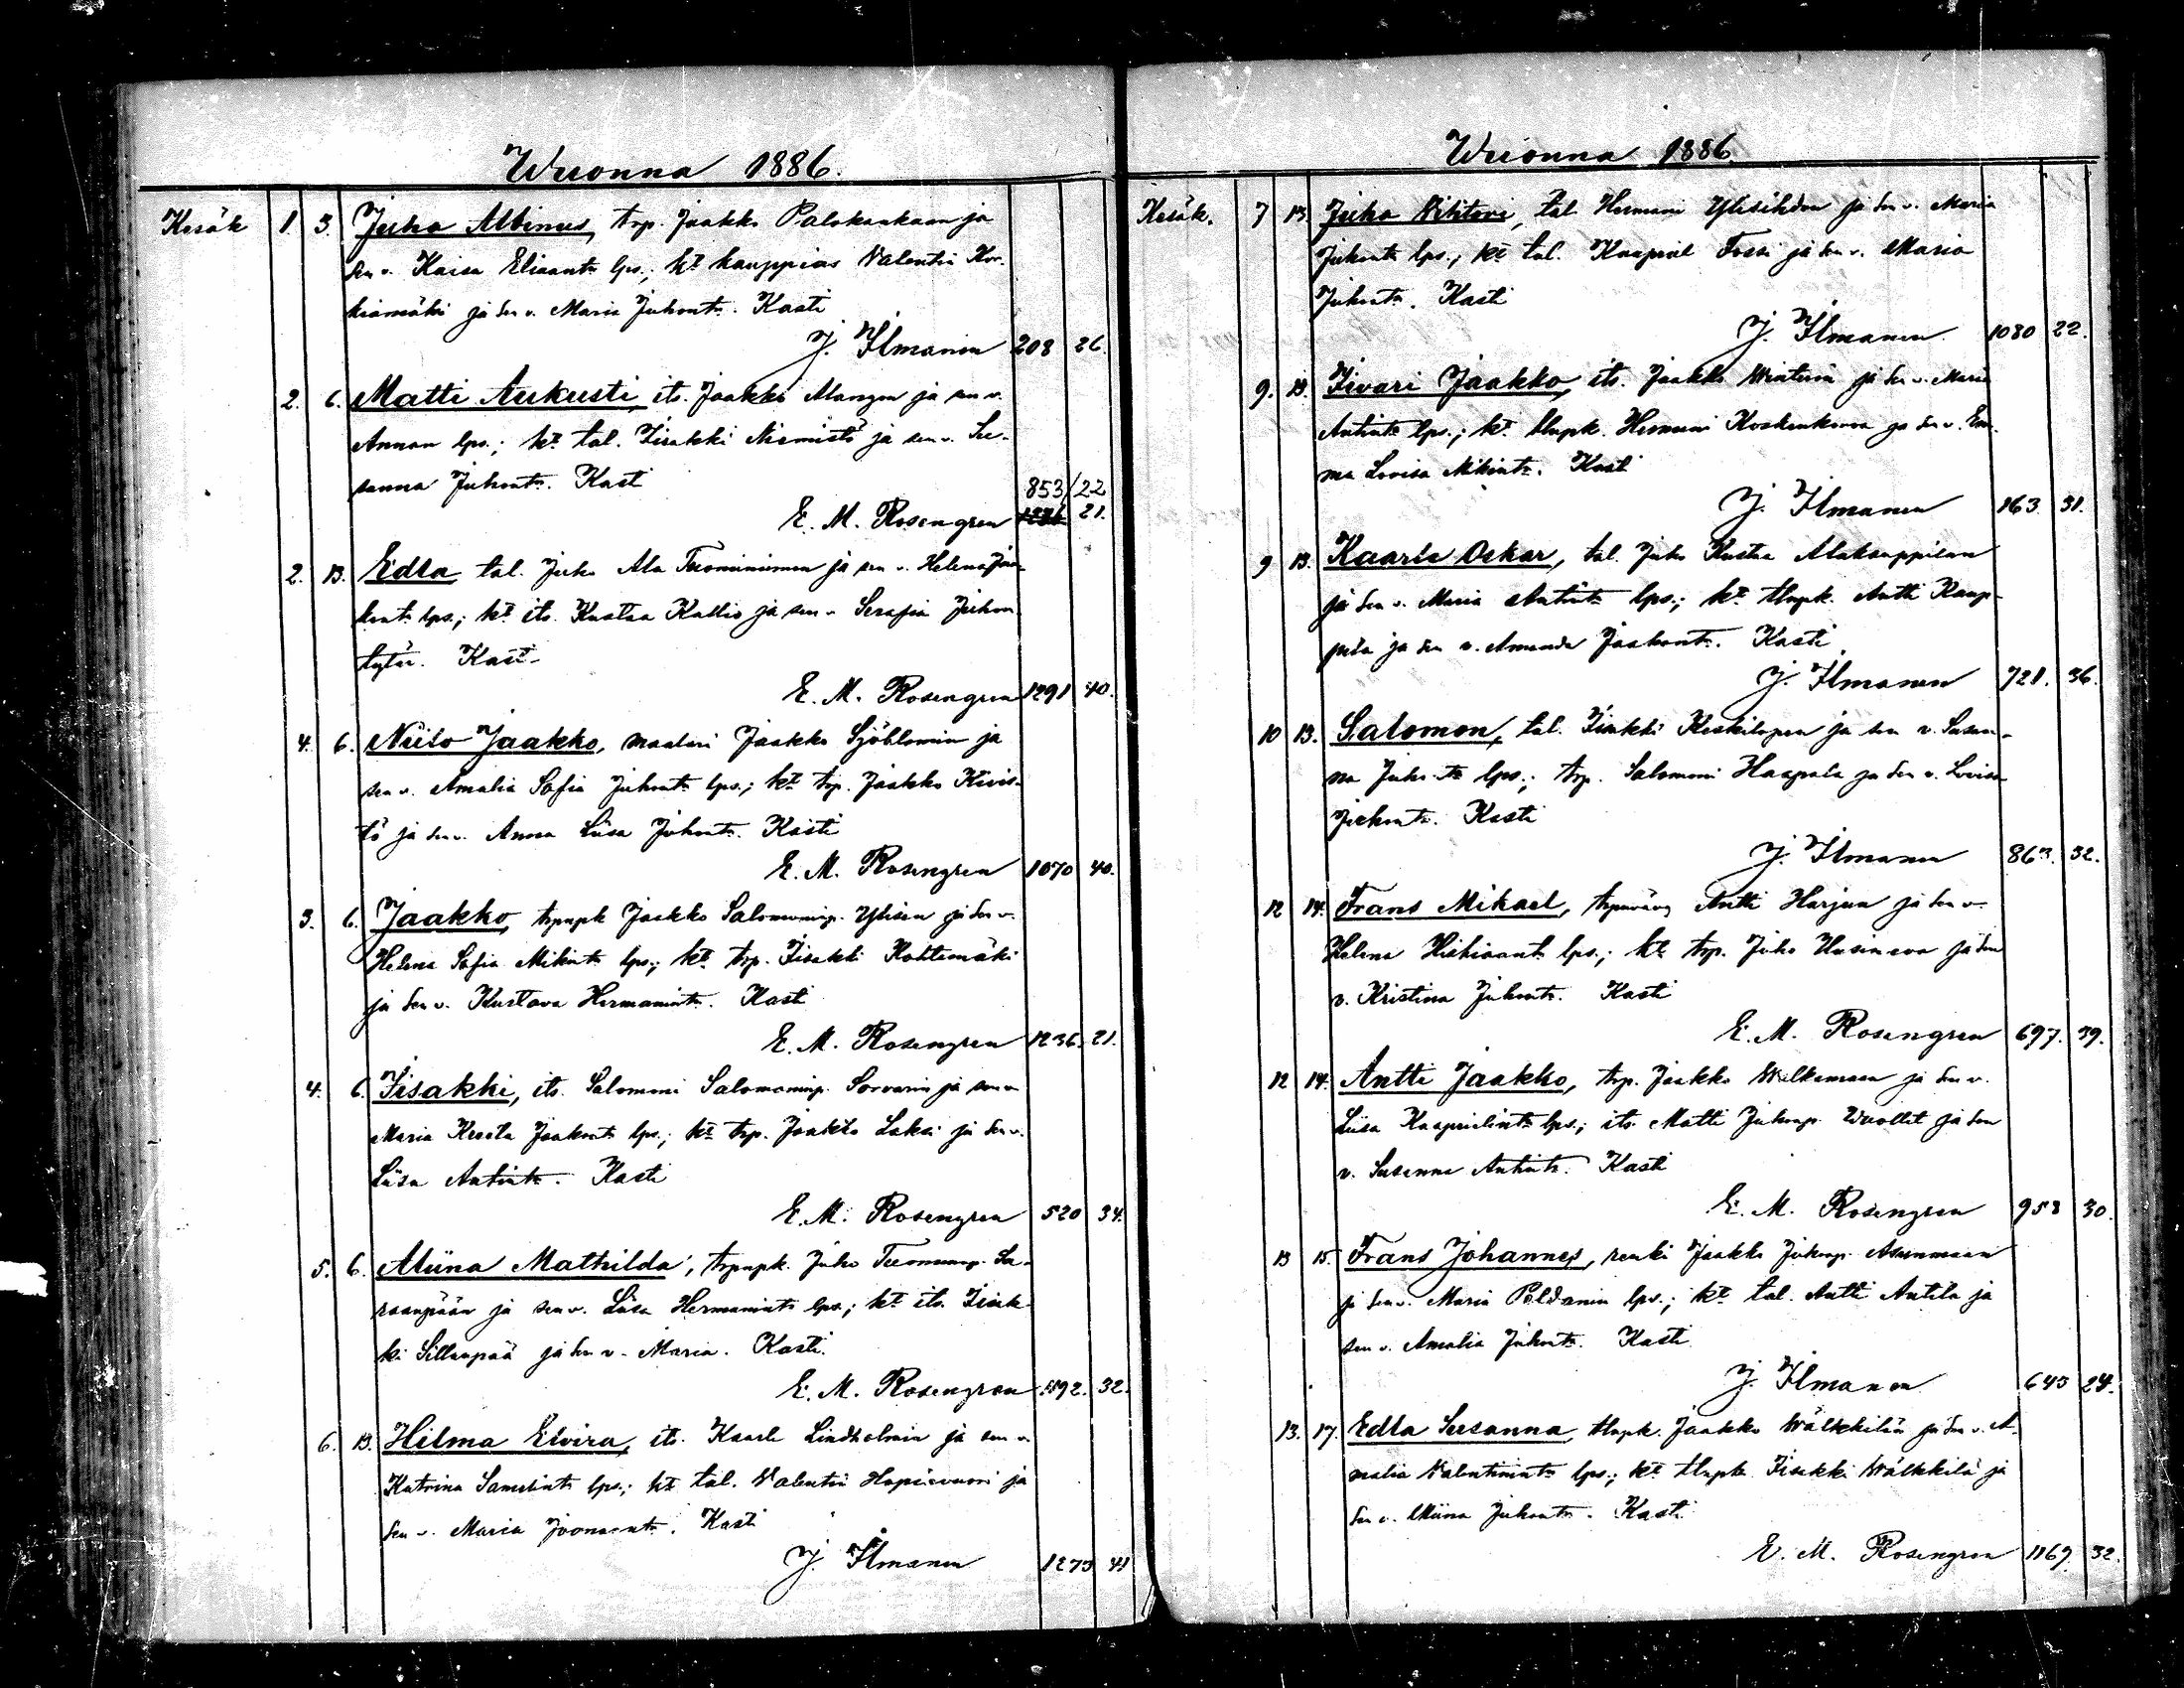 Wuonna 1886.
Kesäk 1. 3. Juho Albinus, trp. Jaakko Palokankaan ja
sen v. Kaisa Eliaantr lps.; kt kauppias Valentin Kor-
kiamäki ja sen v. Maria Juhontr. Kasti
J. Ilmanen 208 26.
2. 6. Matti Aukusti, its. Jaakko Mangen ja sen v.
Annan lps.; kt tal. Iisakki Niemistö ja sen v. Su-
sanna Juhontr. Kast
853/22
E. M. Rosengren 1236 21.
2. 13. Edla tal. Juho Ala Tuominiemen ja sen v. Helena Jaa-
kontr lps.; kt its. Kustaa Kallio ja sen v. Serafia Juhon
tytär. Kast.
E. M. Rosengren 1291 40.
4. 6. Niilo Jaakko, maalari Jaakko Sjöblomin ja
sen v. Amalia Sofia Juhontr lps.; kt trp. Jaakko Kivis-
tö ja sen v. Anna Liisa Juhontr. Kasti
E. M. Rosengren 1070 40.
3. 6. Jaakko, trpnpk Jaakko Salomoninp. Ylisen ja sen v.
Helena Sofia Mikintr lps.; kt trp. Iisakki Kohtamäki
ja sen v. Kustava Hermanintr. Kasti
E. M. Rosengren 1236. 21.
4. 6. Iisakki, its. Salomoni Salomoninp. Sorvarin ja sen v
Maria Kreeta Jaakontr lps.; kt trp. Jaakko Laksi ja sen v.
Liisa Antintr. Kasti
E. M. Rosengren 520 34.
5. 6. Miina Mathilda, trpnpk. Juho Tuomaanp. Sa-
raanpään ja sen v. Liisa Hermanintr lps.; kt its. Iisak-
ki Sillanpää ja sen v. Maria. Kasti.
E. M. Rosengren 592. 32.
6. 13. Hilma Elvira, its. Kaarle Lindholmin ja sen v
Katrina Samelintr lps.; kt tal. Valentin Hapiavuori ja
sen v. Maria Joonaantr. Kasti
J. Ilmanen 1273 41
Wuonna 1886
Kesäk. 7 13. Juho, tal. Hermani Ylisihdon ja sen v. Maria
Juhontr lps.; kt tal. Kaapriel Fossi ja sen v. Maria
Juhontr. Kasti
J. Ilmanen 1080 22.
9. 13. Iivari Jaakko, its. Jaakko Winterin ja sen v. Maria
Antintr lps.; kt tlnpk. Hermani Koskenkorva ja sen v. Em-
ma Lovisa Mikintr. Kasti
J. Ilmanen 163. 31.
9 13. Kaarle Oskar, tal. Juho Kustaa Alakauppilan
ja sen v. Maria Antintr lps.; kt tlnpk. Antti Kaup-
pila ja sen v. Amanda Jaakontr. Kasti
J. Ilmanen 721. 36.
10 13. Salomon, tal. Iisakki Keskilopen ja sen v. Susan-
na Juhontr lps.; trp. Salomoni Haapala ja sen v. Lovisa
Juhontr. Kasti
J. Ilmanen 863. 32.
12 14. Frans Mikael, trpnvävy Antti Harjun ja sen v.
Helena Hiskiaantr lps.; kt trp. Juho ja sen
v. Kristina Juhontr. Kasti
E. M. Rosengren 697. 39.
12 14. Antti Jaakko, trp. Jaakko Walkamaan ja sen v.
Liisa Kaaprielintr lps.; its. Matti Juhonp. Wuollet ja sen
v. Susanna Antintr. Kasti
E. M. Rosengren 953 30.
13 15. Frans Johannes, renki Jaakko Juhonp. Asunmaan
ja sen v. Maria Poldanin lps.; kt tal. Antti Antila ja
sen v. Amalia Juhontr. Kasti
J. Ilmanen 643 24.
13. 17. Edla Susanna, tlnpk. Jaakko Wälkkilän ja sen v. A-
malia Valentinintr lps.; kt tlnpk Iisakki Wälkkilä ja
sen v. Miina Juhontr. Kasti
E. M. Rosengren 1169. 32.